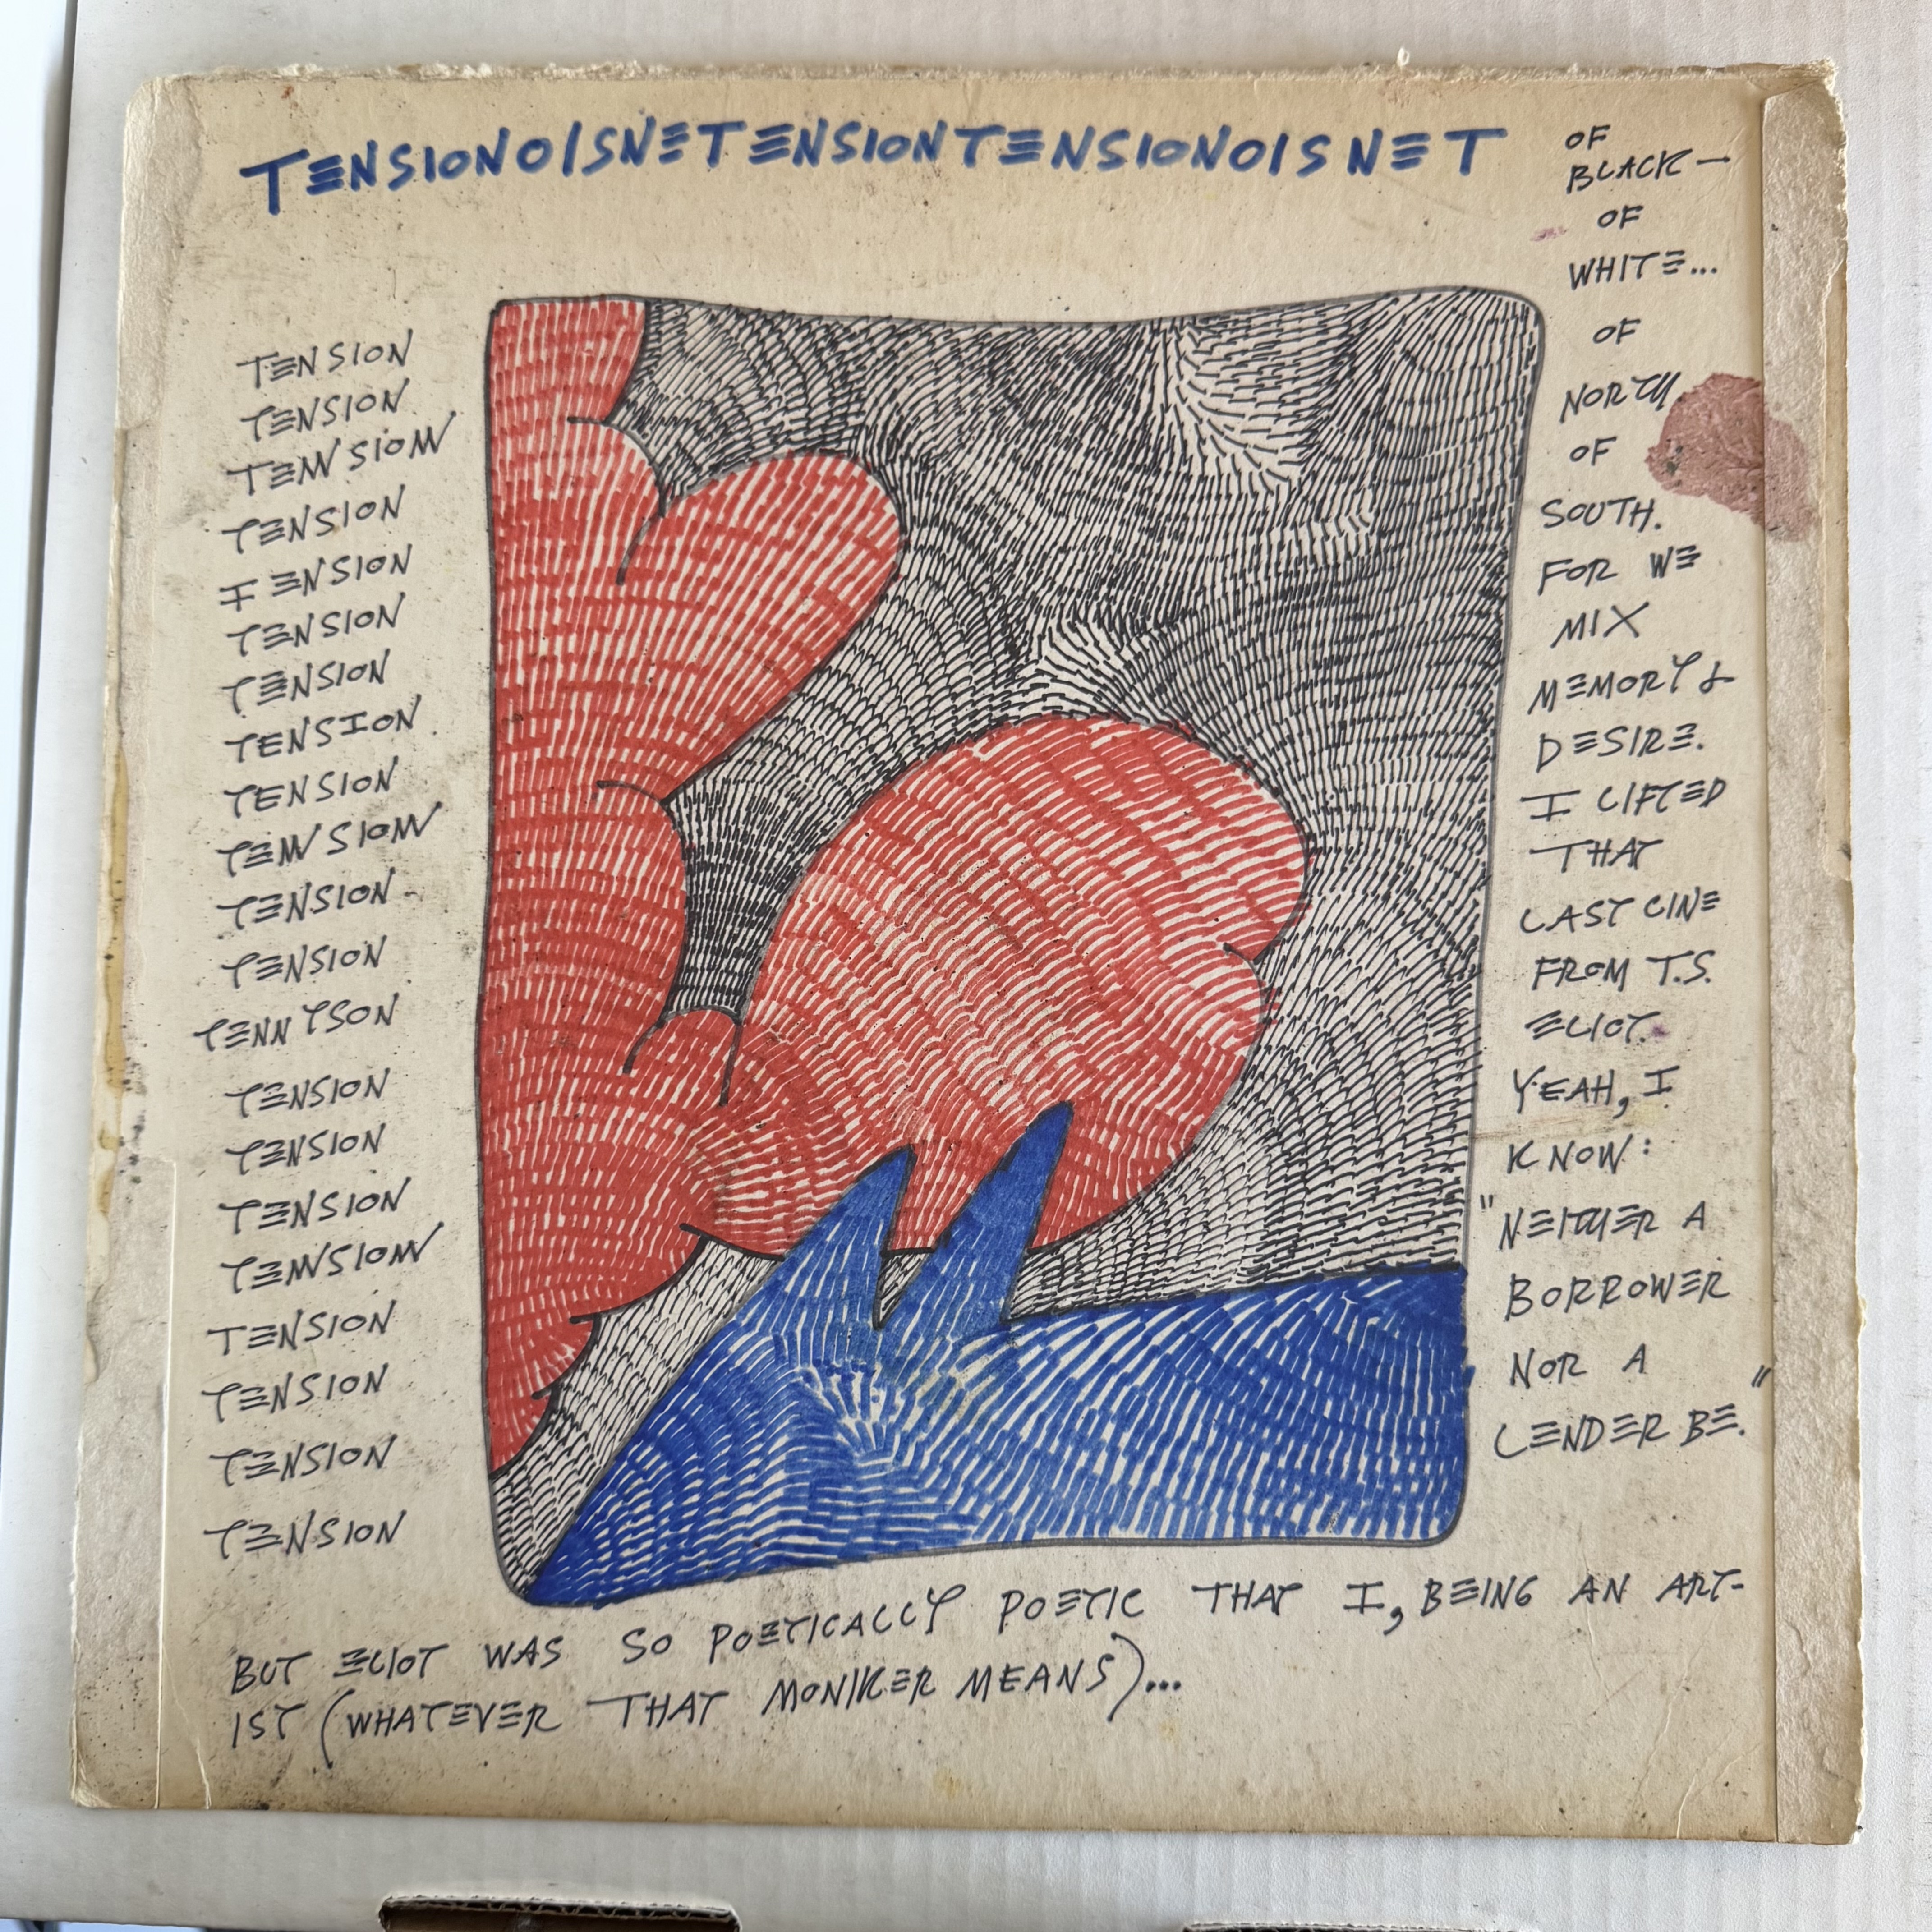 TENSIONOISNETENSIONTENSIONOISNET
TENSION
TENSION
TENSION
TENSION
TENSION
TENSION
TENSION
TENSION
TENSION
TENSION
TENSION-
TENSION
TENNYSON
TENSION
TENSION
TENSION
TENSION
TENSION
TENSION
TENSION
TENSION
OF
BLACK—
OF
WHITE...
OF
NORTH
OF
SOUTH.
FOR WE
MIX
MEMORY &
DESIRE.
I LIFTED
THAT
LAST LINE
FROM T.S.
ELIOT.
YEAH, I
KNOW:
"NEITHER A
BORROWER
NOR A
LENDER BE."
BUT ELIOT WAS SO POETICALLY POETIC THAT I, BEING AN ART-
IST (WHATEVER THAT MONIKER MEANS)...